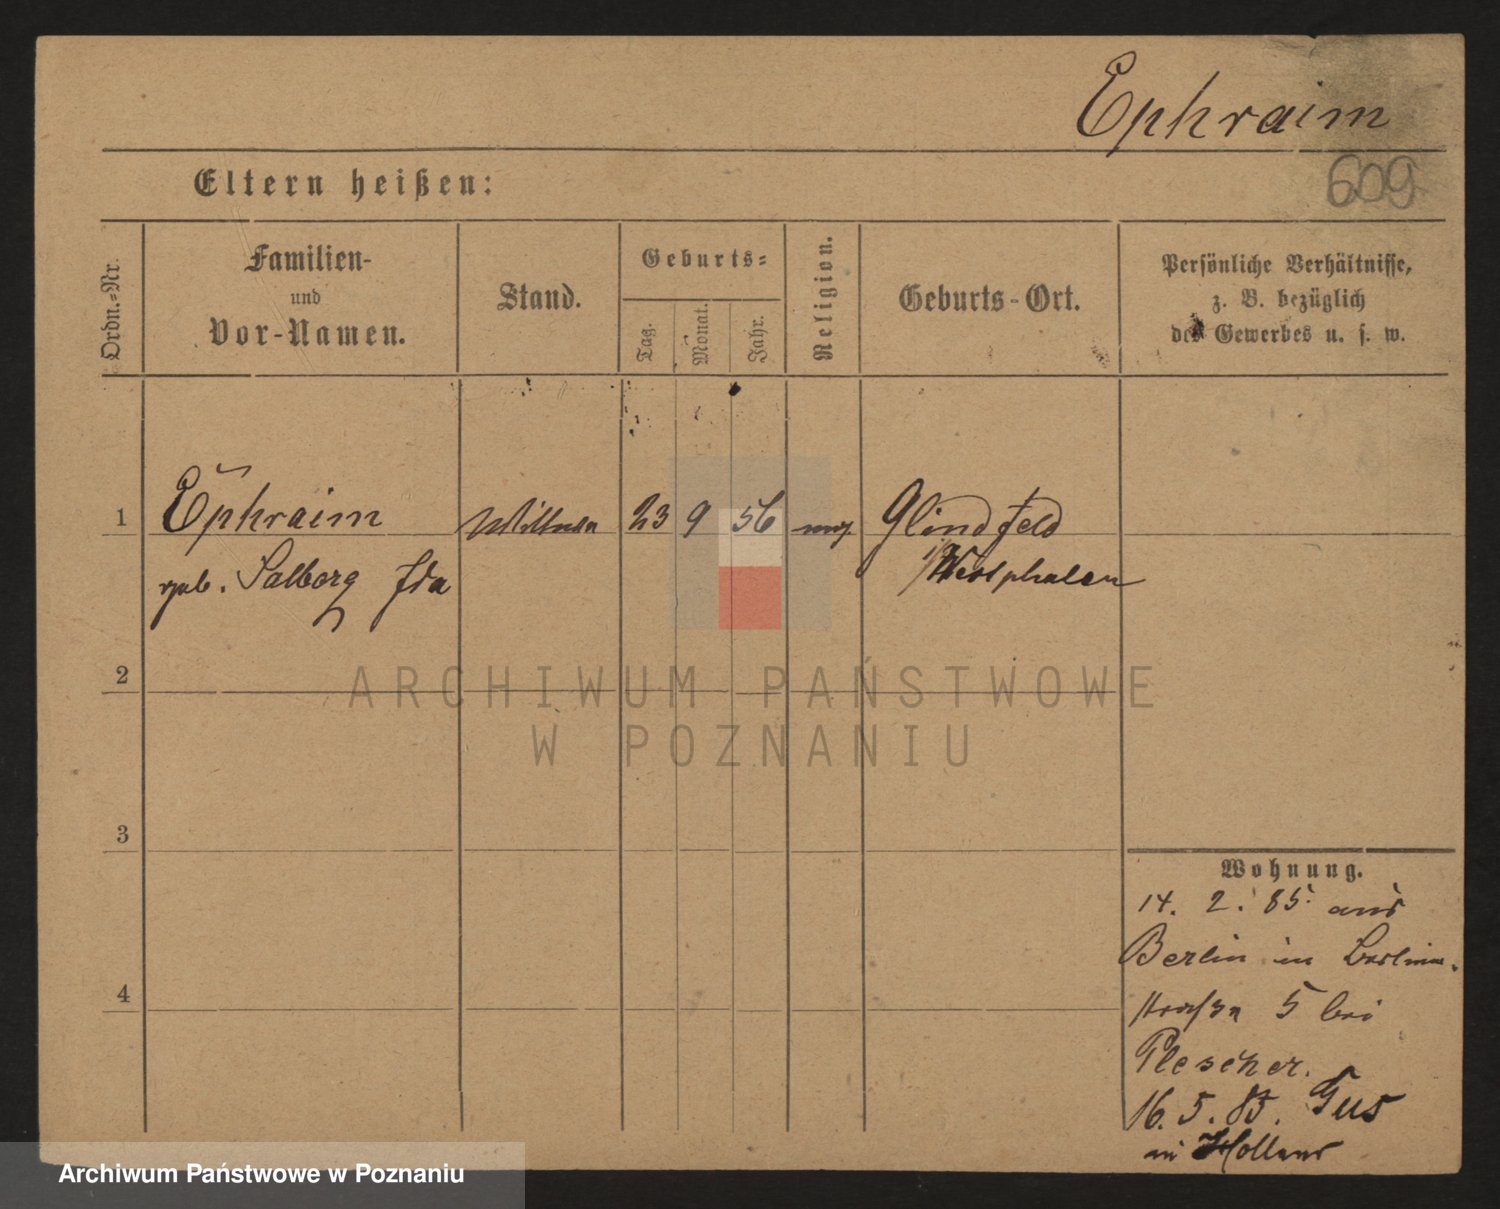 Ephraim
609
Eltern heißen:
Ordn.=Nr.
Familien-
und
Vor-Namen.
Stand.
Geburts=
Tag.
Monat.
Jahr.
Religion.
Geburts-Ort.
Persönliche Verhältnisse,
z. B. bezüglich
des Gewerbes u. s. w.
1 Ephraim Wittwe 23 9 56 Glindfeld
geb. Salborg Ida Westphalen
2
3
4
Wohnung.
14. 2. 85. aus
Berlin in Berliner-
straße 5 bei
Plescher.
16. 5. 85.
in Holland
ARCHIWUM PAŃSTWOWE
W POZNANIU
Archiwum Państwowe w Poznaniu